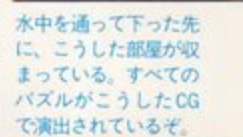 水中を通って下った先
に、こうした部屋が収
まっている。すべての
パズルがこうしたCG
で演出されているぞ。